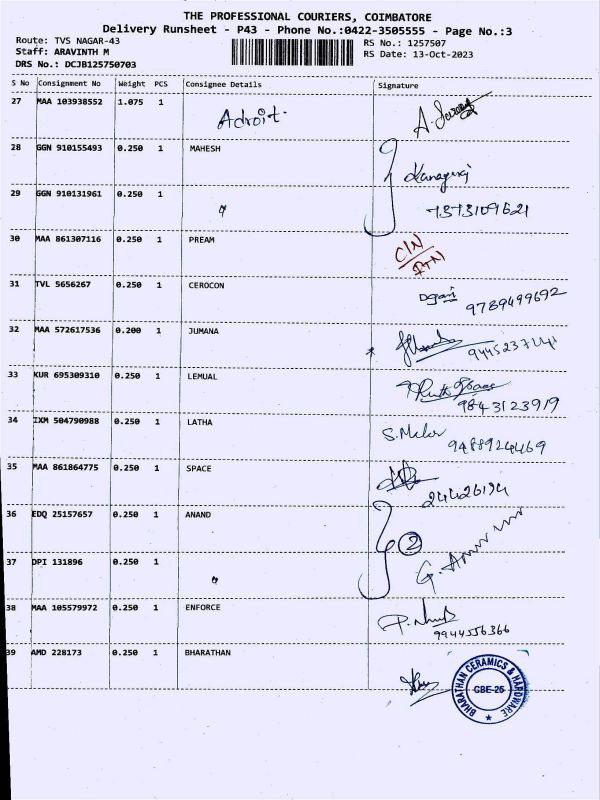 THE PROFESSIONAL COURIERS, COIMBATORE
Delivery Runsheet - P43 - Phone No.:0422-3505555 - Page No.:3
Route: TVS NAGAR-43
RS No.: 1257507
Staff: ARAVINTH M
RS Date: 13-Oct-2023
DRS No.: DCJB125750703
S No Consignment No Weight PCS Consignee Details Signature
27 MAA 103938552 1.075 1 Adroit.
28 GGN 910155493 0.250 1 MAHESH Kanagaraj
29 GGN 910131961 0.250 1 7373109621
30 MAA 861307116 0.250 1 PREAM C/N RTN
31 TVL 5656267 0.250 1 CEROCON 9789499692
32 MAA 572617536 0.200 1 JUMANA
33 KUR 695309310 0.250 1 LEMUAL 9843123919
34 IXM 504790988 0.250 1 LATHA 9488924469
35 MAA 861864775 0.250 1 SPACE 24426194
36 EDQ 25157657 0.250 1 ANAND 2
37 DPI 131896 0.250 1
38 MAA 105579972 0.250 1 ENFORCE 9944556366
39 AMD 228173 0.250 1 BHARATHAN
BHARATHAN CERAMICS & HARDWARE
CBE-25